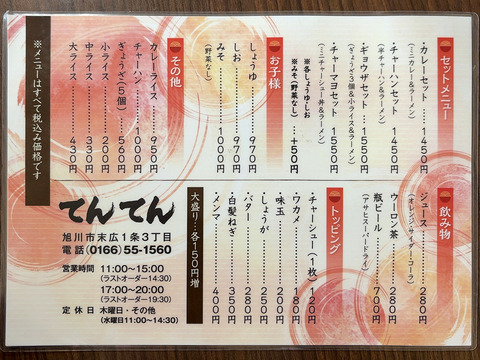 セットメニュー
・カレーセット…………1450円
(ミニカレー&ラーメン)
・チャーハンセット……1450円
(半チャーハン&ラーメン)
・ギョウザセット………1550円
(ぎょうざ3個&小ライス&ラーメン)
・チャーマヨセット……1550円
(ミニチャーシュー丼&ラーメン)
※各しょうゆしお
※みそ(野菜なし)…+50円
お子様
・しょうゆ………970円
・しお……………970円
・みそ…………1000円
(野菜なし)
その他
・カレーライス………950円
・チャーハン………1000円
・ぎょうざ(5個)……560円
・小ライス……………200円
・中ライス……………330円
・大ライス……………430円
※メニューはすべて税込み価格です
飲み物
・ジュース…………280円
(オレンジ・サイダー・コーラ)
・ウーロン茶………280円
・瓶ビール…………700円
(アサヒスーパードライ)
トッピング
・チャーシュー(1枚)120円
・ワカメ……………100円
・味玉………………200円
・しょうが…………50円
・バター……………280円
・白髪ねぎ…………350円
・メンマ……………400円
大盛り…各150円増
てんてん
旭川市末広1条3丁目
電話(0166)55-1560
営業時間 11:00~15:00
(ラストオーダー14:30)
17:00~20:00
(ラストオーダー19:30)
定休日 木曜日・その他
(水曜日11:00~14:30)